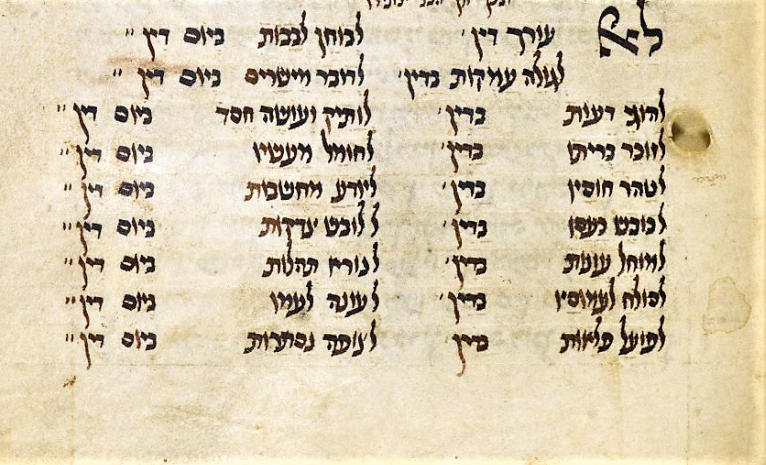 לאל עורך דין לבוחן לבבות ביום דין
לגולה עמקות בדין לדובר מישרים ביום דין
להוגה דעות בדין לותיק ועושה חסד ביום דין
לזוכר בריתו בדין לחומל מעשיו ביום דין
לטהר חוסיו בדין ליודע מחשבות ביום דין
לכובש כעסו בדין ללובש צדקות ביום דין
למוחל עונות בדין לנורא תהלות ביום דין
לסולח לעמוסיו בדין לעונה לעמו ביום דין
לפועל פלאות בדין לצופה נסתרות ביום דין